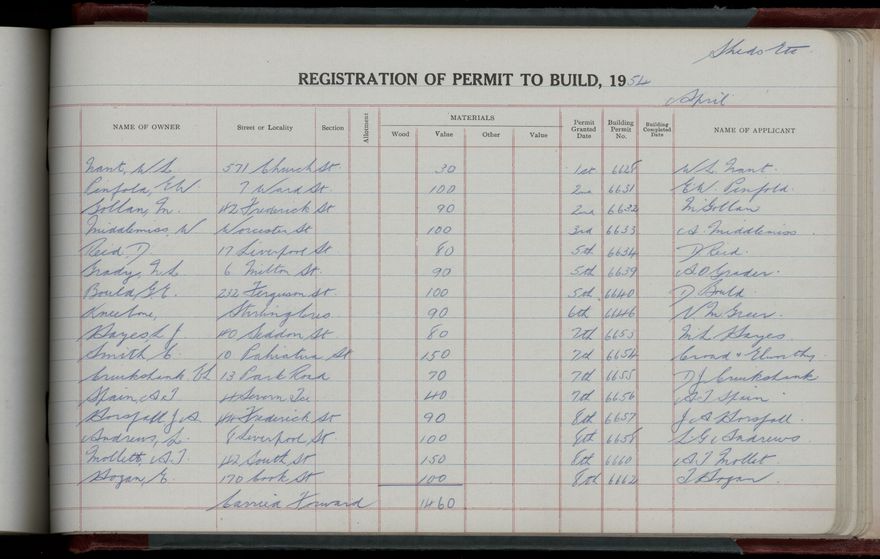 Sheds Etc.
REGISTRATION OF PERMIT TO BUILD, 1954
April
NAME OF OWNER Street or Locality Section Allotment MATERIALS Wood Value Other Value Permit Granted Date Building Permit No. Building Completed Date NAME OF APPLICANT
Nant, W.L. 571 Church St. 30 1st 6628 W.L. Nant.
Penfold, E.W. 7 Ward St. 100 2nd 6631 E.W. Penfold.
Gollan, M. 42 Frederick St 90 2nd 6632 M Gollan
Middlemiss, W Worcester St 100 3rd 6633 A. Middlemiss.
Reid. D 17 Liverpool St. 80 5th 6634 D Reid.
6 Milton St. 90 5th 6639
Bould, G.E. 232 Ferguson St. 100 5th 6640 D Bould.
Kneebone, 90 6th 6646 N. M. Greer.
Hayes, J. 40 Seddon St 80 7th 6653 M.L. Hayes.
Smith E. 10 Pahiatua St 150 7th 6654 Croad & Elworthy.
Cruikshank, 13 Park Road 70 7th 6655 D.J. Cruikshank
Spain, A.T 4 Severn Tce 40 7th 6656 A.T Spain.
Horsfall J.A. 40 Frederick St 90 8th 6657 J A Horsfall.
Andrews, L. 8 Liverpool St. 100 8th 6658 L.G. Andrews.
Mollett, A.T. 42 South St 150 8th 6660 A.T Mollet.
Hogan, E. 170 Cook St 100 8th 6662 T Hogan.
Carried Forward 1460